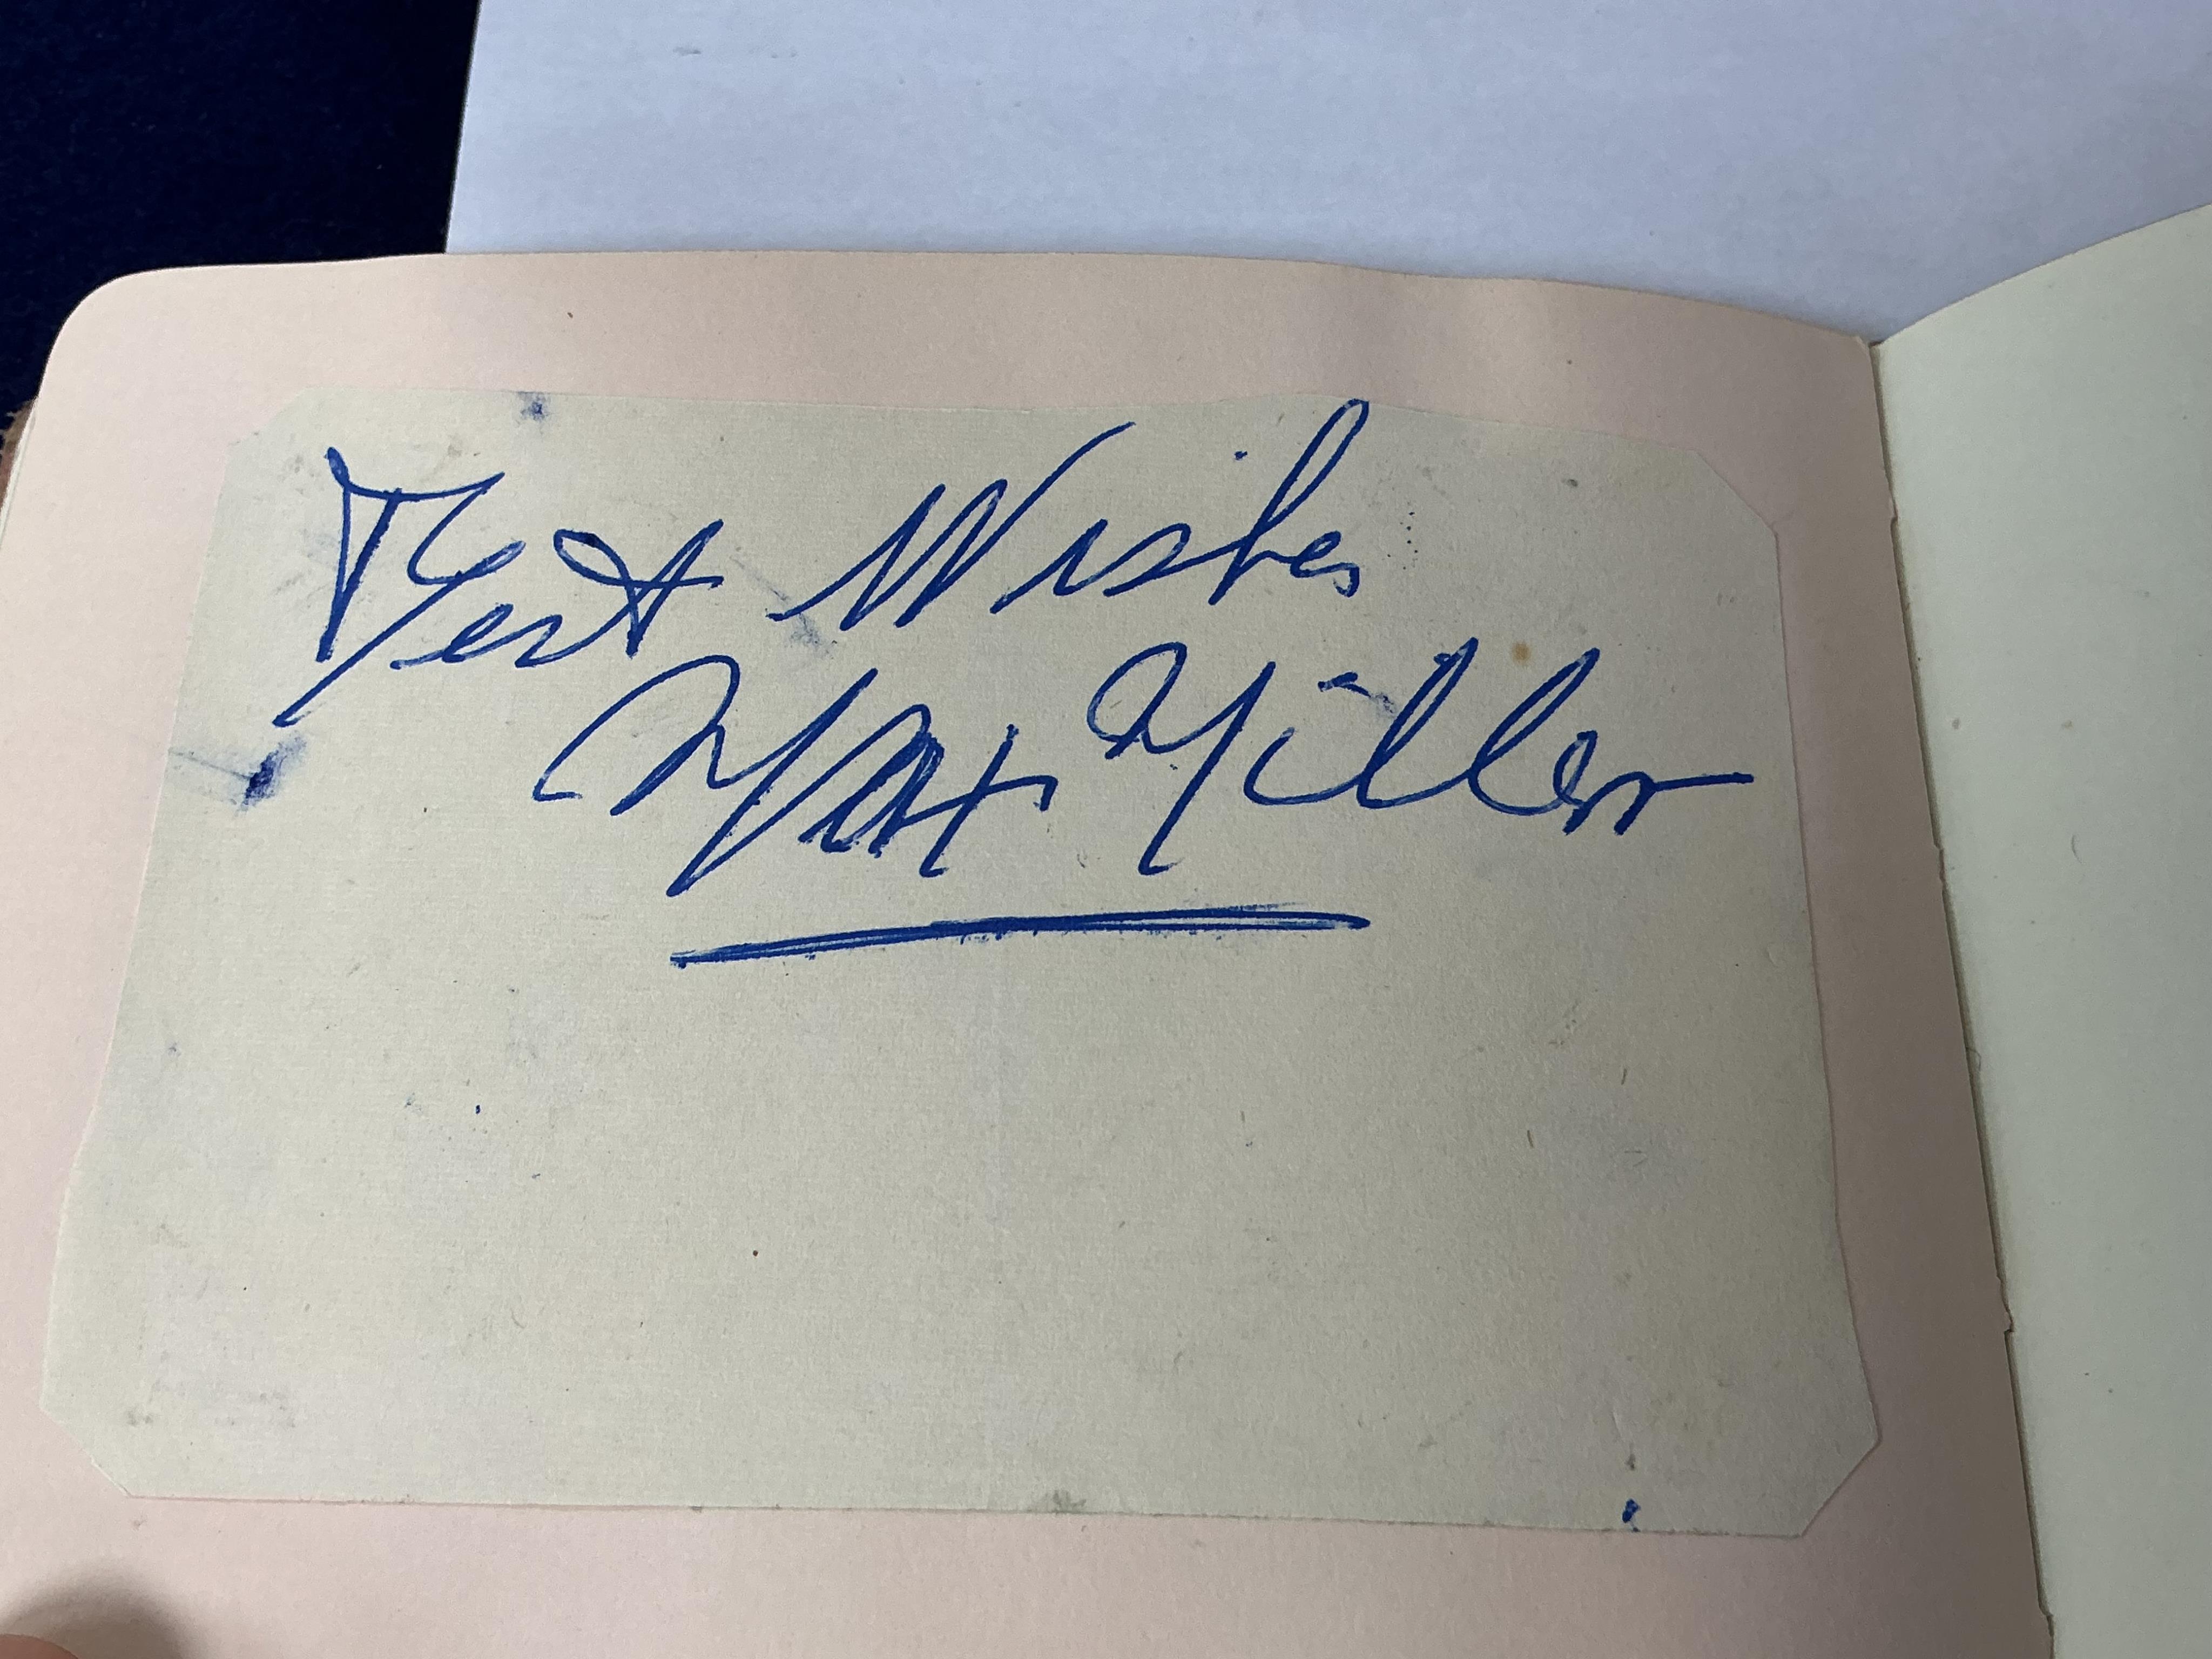 Best Wishes
Max Miller